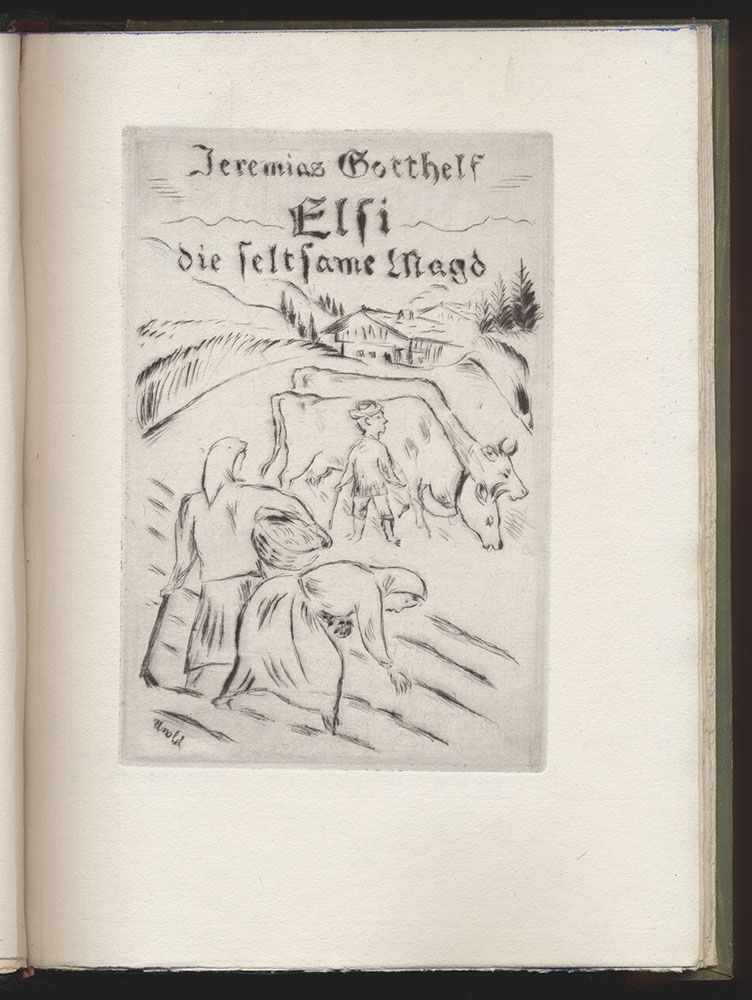 Jeremias Gotthelf
Elsi
die seltsame Magd
Unold